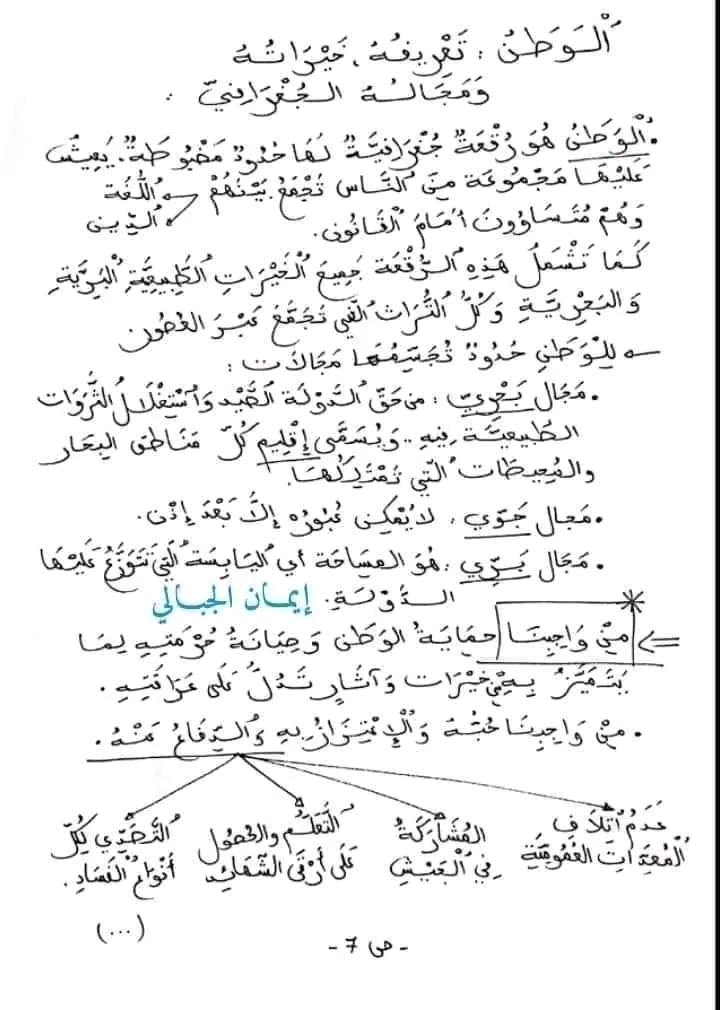 الْوَطَنُ : تَعْرِيفُهُ ، خَيْرَاتُهُ
وَمَجَالُهُ الجُغْرَافِيّ :
. الْوَطَنُ هُوَ رُقْعَةٌ جُغْرَافِيَّةٌ لَهَا حُدُودٌ مَضْبُوطَةٌ. يَعِيشُ
عَلَيْهَا مَجْمُوعَة مِنَ النَّاس تُجْمَعُ بَيْنَهُمْ اللُّغَة
الدِّين
وَهُمْ مُتَسَاوُونَ أَمَامَ الْقَانُون.
كَمَا تَشْمَلُ هَذِهِ الرُّقْعَة جَمِيعَ الْخَيْرَاتِ الطَّبِيعِيَّةِ الْبَرِّيَّةِ
وَالبَحْرِيَّةِ وَكُلُّ التُّرَاث الَّتِي تُجَمَّعُ عَبْرَ العُصُور
لِلْوَطَنِ حُدُودٌ تُجَسِّمُهَا مَجَالَات :
. مَجَال بَحْرِيّ : مِن حَقّ الدَّوْلَة الصَّيْد وَاسْتِغْلَالُ الثَّرَوَات
الطَّبِيعِيَّة فِيهِ .. وَيُسَمَّى إِقْلِيم كُلّ مَنَاطِق البِحَار
والمُحِيطَات الَّتِي تَمْتَلِكُهَا.
. مَجَال جَوّي ، لَا يُمْكِن عُبُورُهُ إِلَّا بَعْدَ إِذْن.
. مَجَال بَرِّي : هُوَ المِسَاحَة أي اليَابِسَة الَّتِي تَتَوَزَّعُ عَلَيْهَا
الدَّوْلَةِ. إيمان الجبالي
⇐ مِنْ وَاجِبِنَا حِمَايَةُ الوَطَن وَصِيَانَةُ حُرْمَتِهِ لِمَا
يَتَمَيَّزُ بِهِ مِنْ خَيْرَات وَآثَارٍ تَدُلُّ عَلَى عَرَاقَتِهِ .
. مِنْ وَاجِبِنَا حُبُّهُ وَالْإِعْتِزَازُ بِهِ وَالدِّفَاعُ عَنْهُ .
عَدَمُ اتْلَافِ المُشَارَكَةُ التَّعَلُّمُ والحُصُول التَّصَدِّي لِكُلّ
الْمُعَدَّاتِ العُمُومِيَّة فِي الْعَيْشِ عَلَى أَرْقَى الشَّهَائِد أَنْوَاعِ الفَسَادِ.
(...)
- ص 7 -